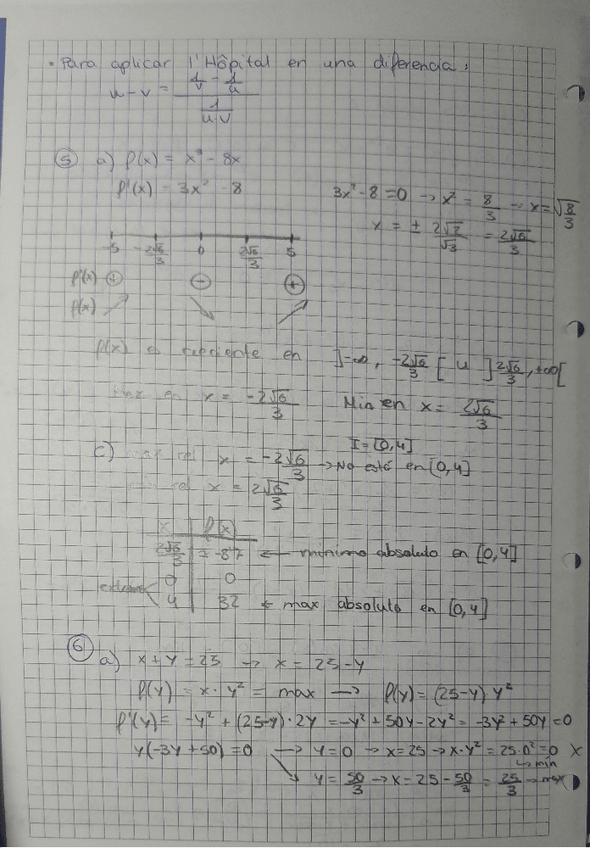 • Para aplicar l'Hôpital en una diferencia:
u-v = (1/v - 1/u) / (1/(u·v))
⑤ a) f(x) = x³ - 8x
f'(x) = 3x² - 8    3x² - 8 = 0 → x² = 8/3 → x = √(8/3)
x = ± 2√2/√3 = 2√6/3
-5    -2√6/3    0    2√6/3    5
f'(x) ⊕    ⊖    ⊕
f(x) ↗    ↘    ↗
f(x) es creciente en ]-∞, -2√6/3[ u ]2√6/3, +∞[
Max en x = -2√6/3    Min en x = 2√6/3
I = [0,4]
c) rel x = -2√6/3 → No está en [0,4]
rel x = 2√6/3
x | f(x)
2√6/3 | ≈ -8'7 ← mínimo absoluto en [0,4]
0 | 0
4 | 32 ← max absoluto en [0,4]
⑥ a) x + y = 25 → x = 25 - y
f(y) = x · y² = max → f(y) = (25-y) y²
f'(y) = -y² + (25-y)·2y = -y² + 50y - 2y² = -3y² + 50y = 0
y(-3y + 50) = 0 → y = 0 → x = 25 → x·y² = 25·0² = 0 X
↳ min
↘ y = 50/3 → x = 25 - 50/3 = 25/3 → max